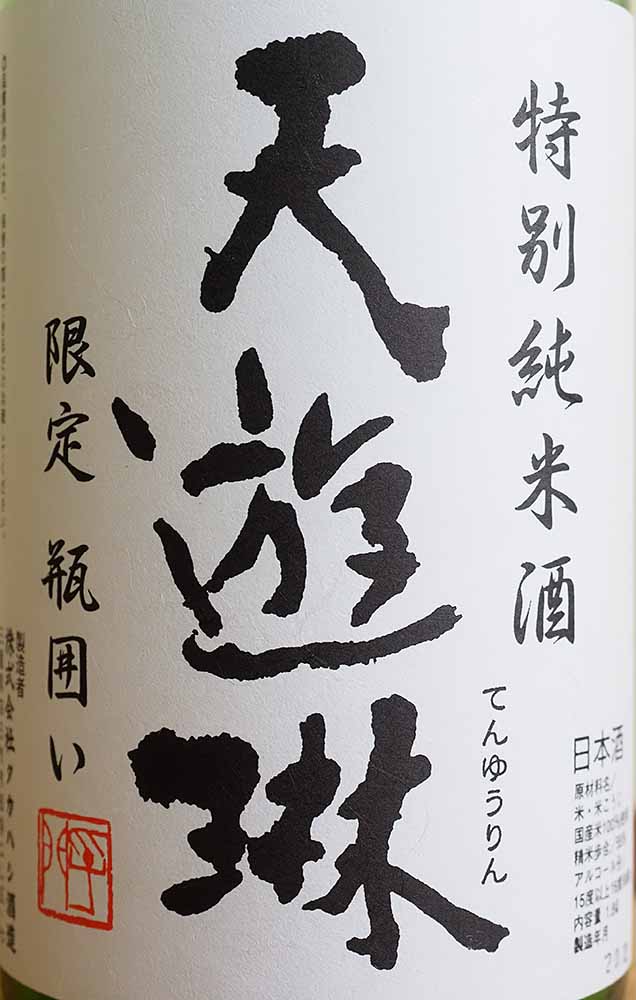 特別純米酒
天遊琳
てんゆうりん
限定 瓶囲い
日本酒
原材料名/
米・米こうじ
国産米100%
精米歩合/
アルコール分
15度以上
内容量 1.8ℓ
製造年月
製造者
株式会社タカハシ酒造